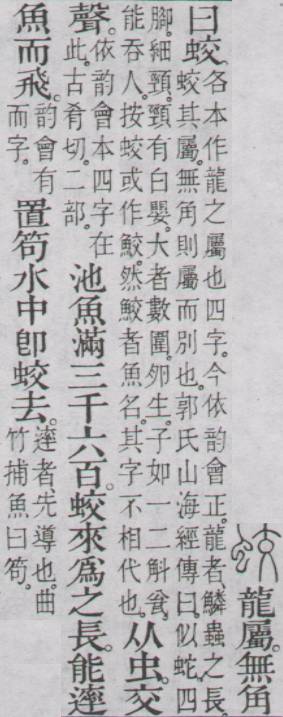 龍屬。無角
曰蛟。各本作龍之屬也四字。今依韵會正。龍者、鱗蟲之長。
蛟其屬。無角則屬而別也。郭氏山海經傳曰。似蛇。四
脚。細頸。頸有白嬰。大者數圍。夘生。子如一二斛瓮。
能吞人。按蛟或作鮫。然鮫者魚名。其字不相代也。从虫。交
聲。依韵會本四字在
此。古肴切。二部。池魚滿三千六百。蛟來爲之長。能䢦
魚而飛。韵會有
而字。置笱水中卽蛟去。䢦者先導也。曲
竹捕魚曰笱。